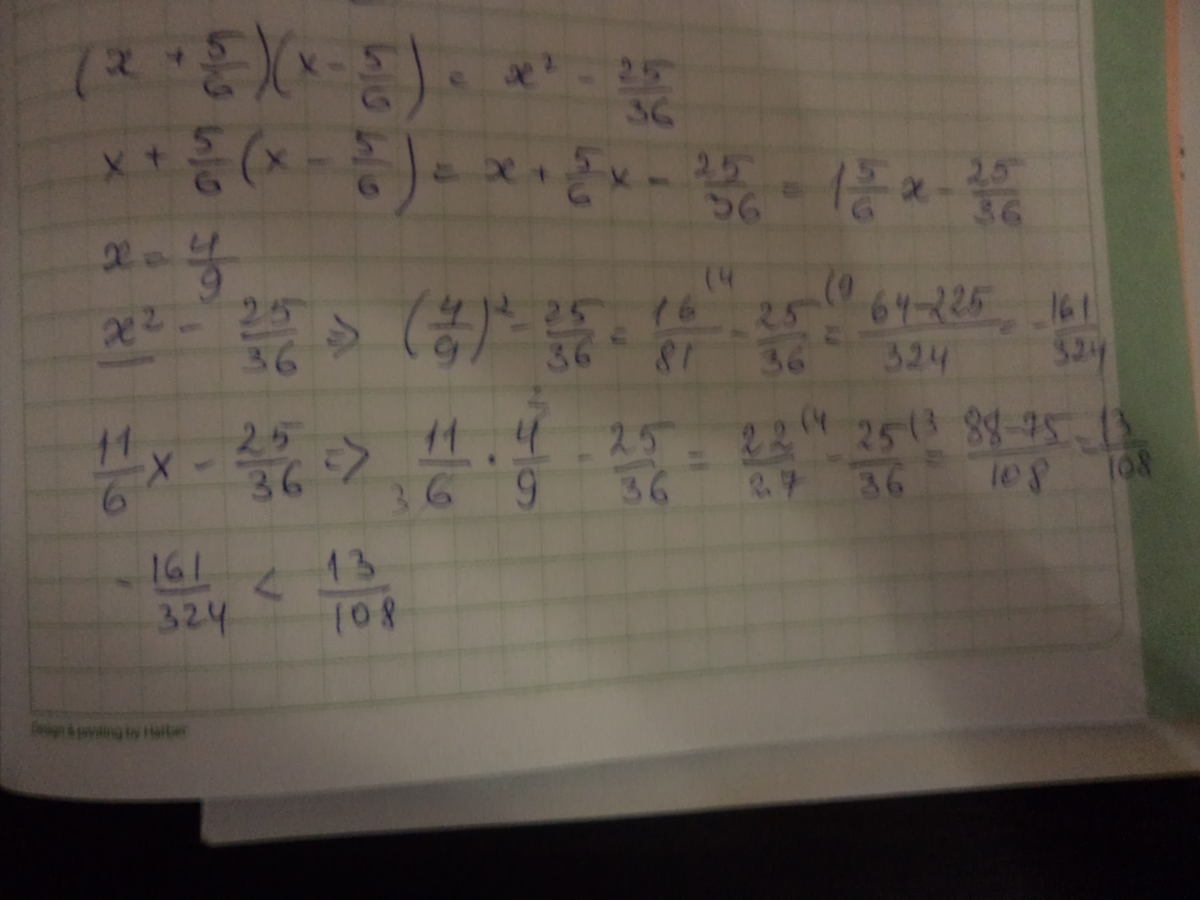 (x + 5/6)(x - 5/6) = x² - 25/36
x + 5/6(x - 5/6) = x + 5/6x - 25/36 = 1 5/6 x - 25/36
x = 4/9
x² - 25/36 ⇒ (4/9)² - 25/36 = 16/81 (4 - 25/36 (9 = 64-225/324 = -161/324
11/6x - 25/36 ⇒ 11/6 3 · 4/9 2 - 25/36 = 22/27 (4 - 25/36 (3 = 88-75/108 = 13/108
-161/324 < 13/108
Design & printing by Hatber